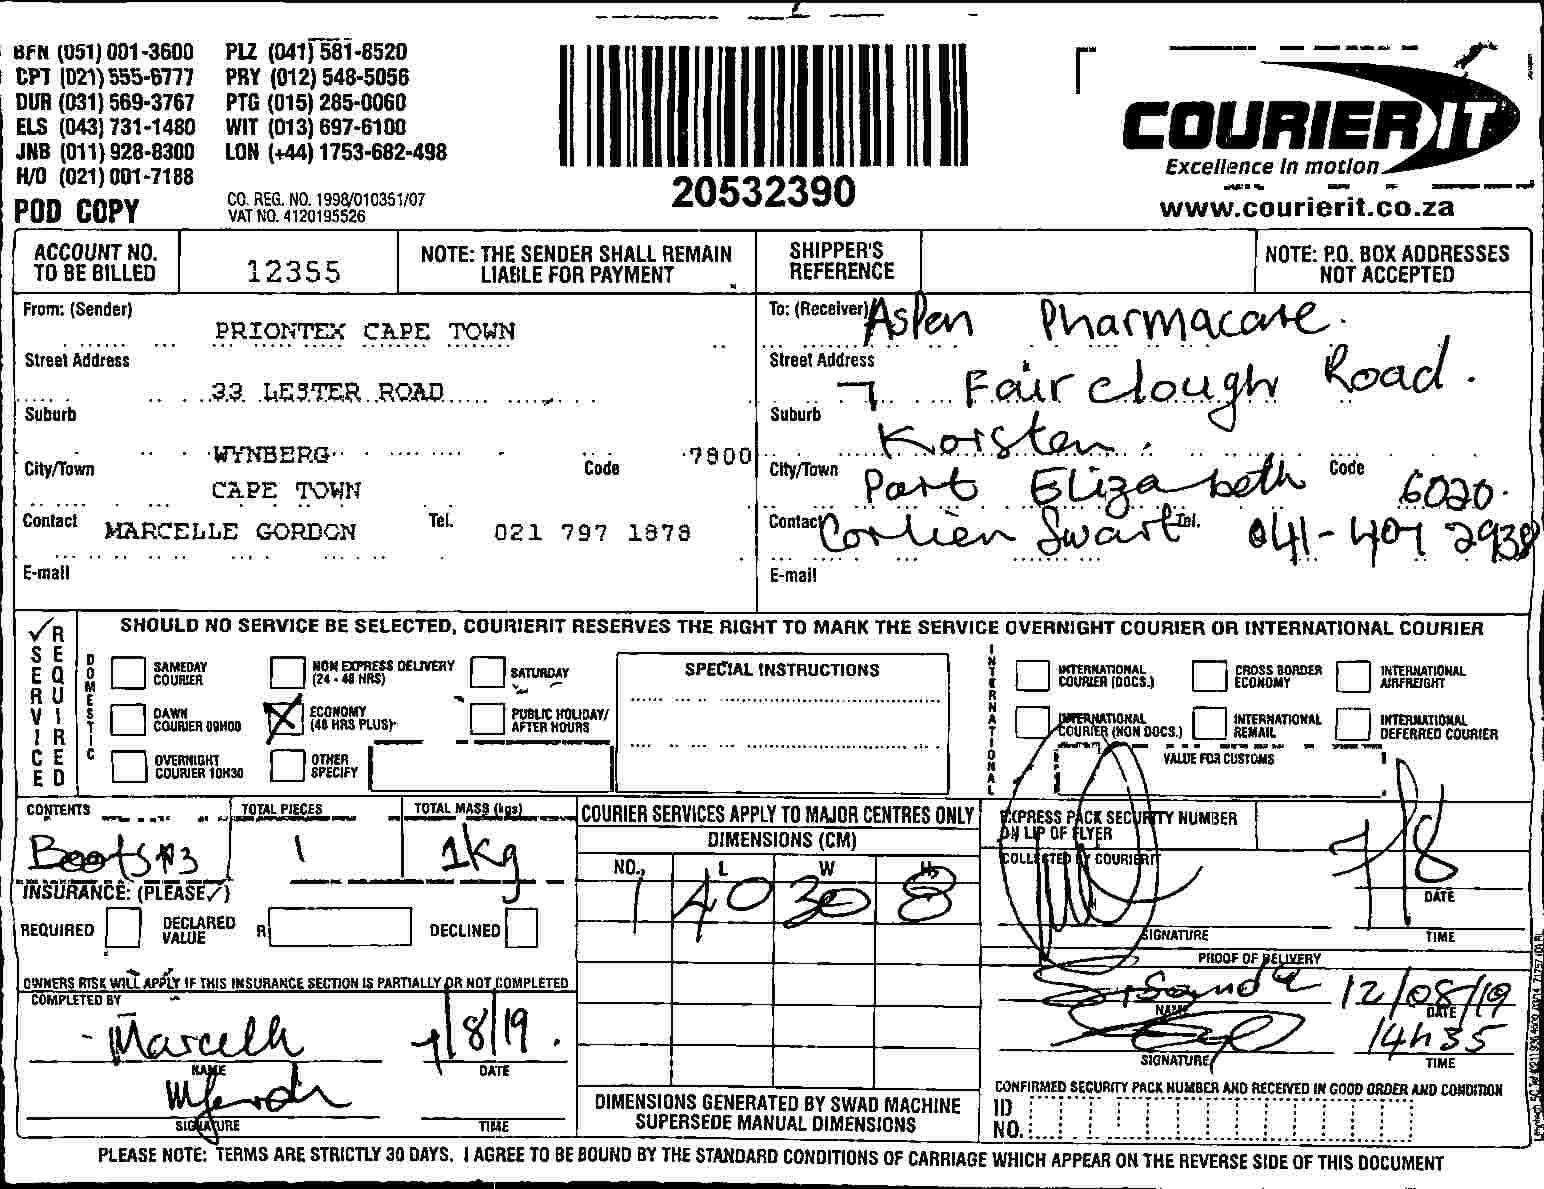 BFN (051) 001-3600 PLZ (041) 581-8520
CPT (021) 555-6777 PRY (012) 548-5056
DUR (031) 569-3767 PTG (015) 285-0060
ELS (043) 731-1480 WIT (013) 697-6100
JNB (011) 928-8300 LON (+44) 1753-682-498
H/O (021) 001-7188
POD COPY
CO. REG. NO. 1998/010351/07
VAT NO. 4120195526
20532390
COURIER IT
Excellence in motion
www.courierit.co.za
ACCOUNT NO. TO BE BILLED
12355
NOTE: THE SENDER SHALL REMAIN LIABLE FOR PAYMENT
SHIPPER'S REFERENCE
NOTE: P.O. BOX ADDRESSES NOT ACCEPTED
From: (Sender)
PRIONTEX CAPE TOWN
Street Address
33 LESTER ROAD
Suburb
WYNBERG
City/Town
CAPE TOWN
Code
7800
Contact MARCELLE GORDON
Tel. 021 797 1878
E-mail
To: (Receiver) Aspen Pharmacare.
Street Address
7 Fairclough Road.
Suburb
Korsten.
City/Town
Port Elizabeth
Code
6020.
Contact Corlien Swart
Tel. 041-407 2938
E-mail
✓ SERVICE REQUIRED
SHOULD NO SERVICE BE SELECTED, COURIERIT RESERVES THE RIGHT TO MARK THE SERVICE OVERNIGHT COURIER OR INTERNATIONAL COURIER
DOMESTIC
SAMEDAY COURIER
NON EXPRESS DELIVERY (24 - 48 HRS)
SATURDAY
DAWN COURIER 09H00
X ECONOMY (48 HRS PLUS)
PUBLIC HOLIDAY/ AFTER HOURS
OVERNIGHT COURIER 10H30
OTHER SPECIFY
SPECIAL INSTRUCTIONS
INTERNATIONAL
INTERNATIONAL COURIER (DOCS.)
CROSS BORDER ECONOMY
INTERNATIONAL AIRFREIGHT
INTERNATIONAL COURIER (NON DOCS.)
INTERNATIONAL REMAIL
INTERNATIONAL DEFERRED COURIER
VALUE FOR CUSTOMS
CONTENTS
TOTAL PIECES
TOTAL MASS (kgs)
1
1kg
INSURANCE: (PLEASE ✓)
REQUIRED
DECLARED VALUE R
DECLINED
OWNERS RISK WILL APPLY IF THIS INSURANCE SECTION IS PARTIALLY OR NOT COMPLETED
COMPLETED BY
Marcelle
7/8/19.
NAME
DATE
SIGNATURE
TIME
COURIER SERVICES APPLY TO MAJOR CENTRES ONLY
DIMENSIONS (CM)
NO. L W H
1 40 30 8
DIMENSIONS GENERATED BY SWAD MACHINE SUPERSEDE MANUAL DIMENSIONS
EXPRESS PACK SECURITY NUMBER ON LIP OF FLYER
COLLECTED BY COURIERIT
7/8
DATE
SIGNATURE
TIME
PROOF OF DELIVERY
12/08/19
NAME
DATE
14h35
SIGNATURE
TIME
CONFIRMED SECURITY PACK NUMBER AND RECEIVED IN GOOD ORDER AND CONDITION
ID NO.
PLEASE NOTE: TERMS ARE STRICTLY 30 DAYS. I AGREE TO BE BOUND BY THE STANDARD CONDITIONS OF CARRIAGE WHICH APPEAR ON THE REVERSE SIDE OF THIS DOCUMENT